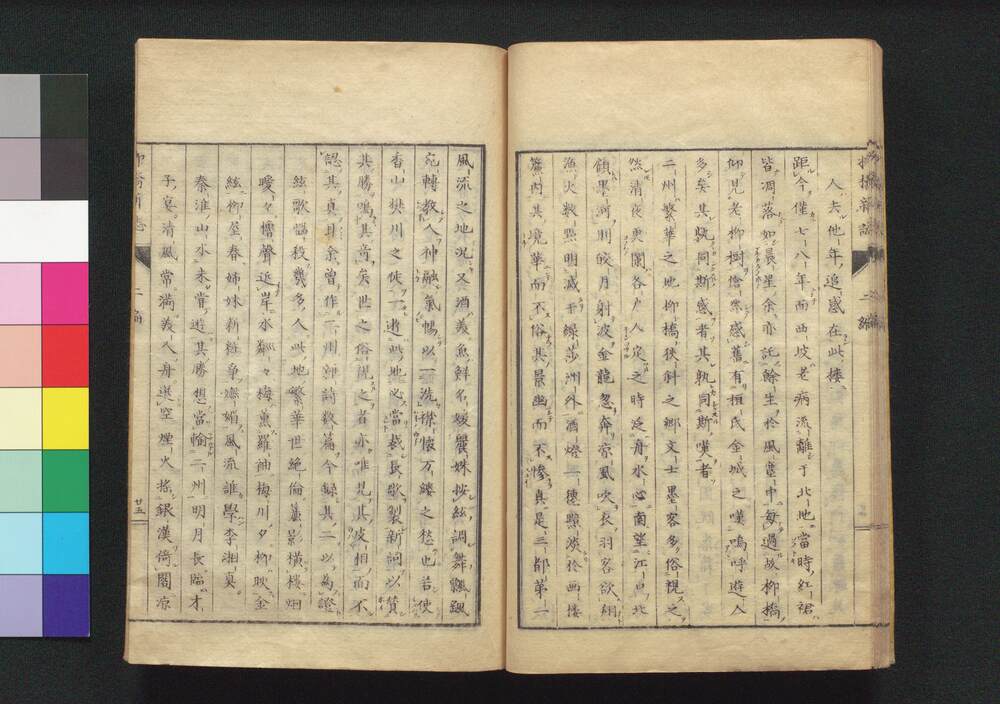 人夫他年追感在此楼
距今僅七八年而西坡老病流離于北地當時紅裙
皆凋落如晨星余亦託餘生於風塵中毎過故柳橋
仰見老柳樹愴然感舊有桓氏金城之嘆嗚呼遊人
多矣其既同斯感者其孰同斯嘆者
二州繁華之地柳橋狭斜之郷文士墨客多俗視之
然清夜更闌各戸人定之時泛舟水心南望江口北
顧墨河則皎月射波金龍忽奔凉風吹衣羽客欲翔
漁火数點明滅于緑莎洲外酒燈一穗黯淡於画楼
簾内其境華而不俗其景幽而不惨真是三都第一
風流之地况又酒美魚鮮名媛麗姝按絃調舞飄颻
宛轉教人神融氣暢以一洗襟懐万縷之愁也若使
香山樊川之徒一遊此地必當裁長歌製新詞以賛
其勝鳴其音矣世之俗視之者亦唯見其皮相而不
認其真耳余曾作二州即詩数篇今録其二以為證
絃歌惱殺幾多人此地繁華世絶倫簾影横楼烟
曖々櫓聲近岸水粼々梅薫羅袖梅川夕柳映金
絃柳屋春姉妹新粧争嬌媚風流誰學李湘眞
秦淮山水未嘗遊其勝想當愉二州明月長臨才
子宴清風常満美人舟送空煙火揺銀漢倚閣凉
柳橋新誌
二編
廿五